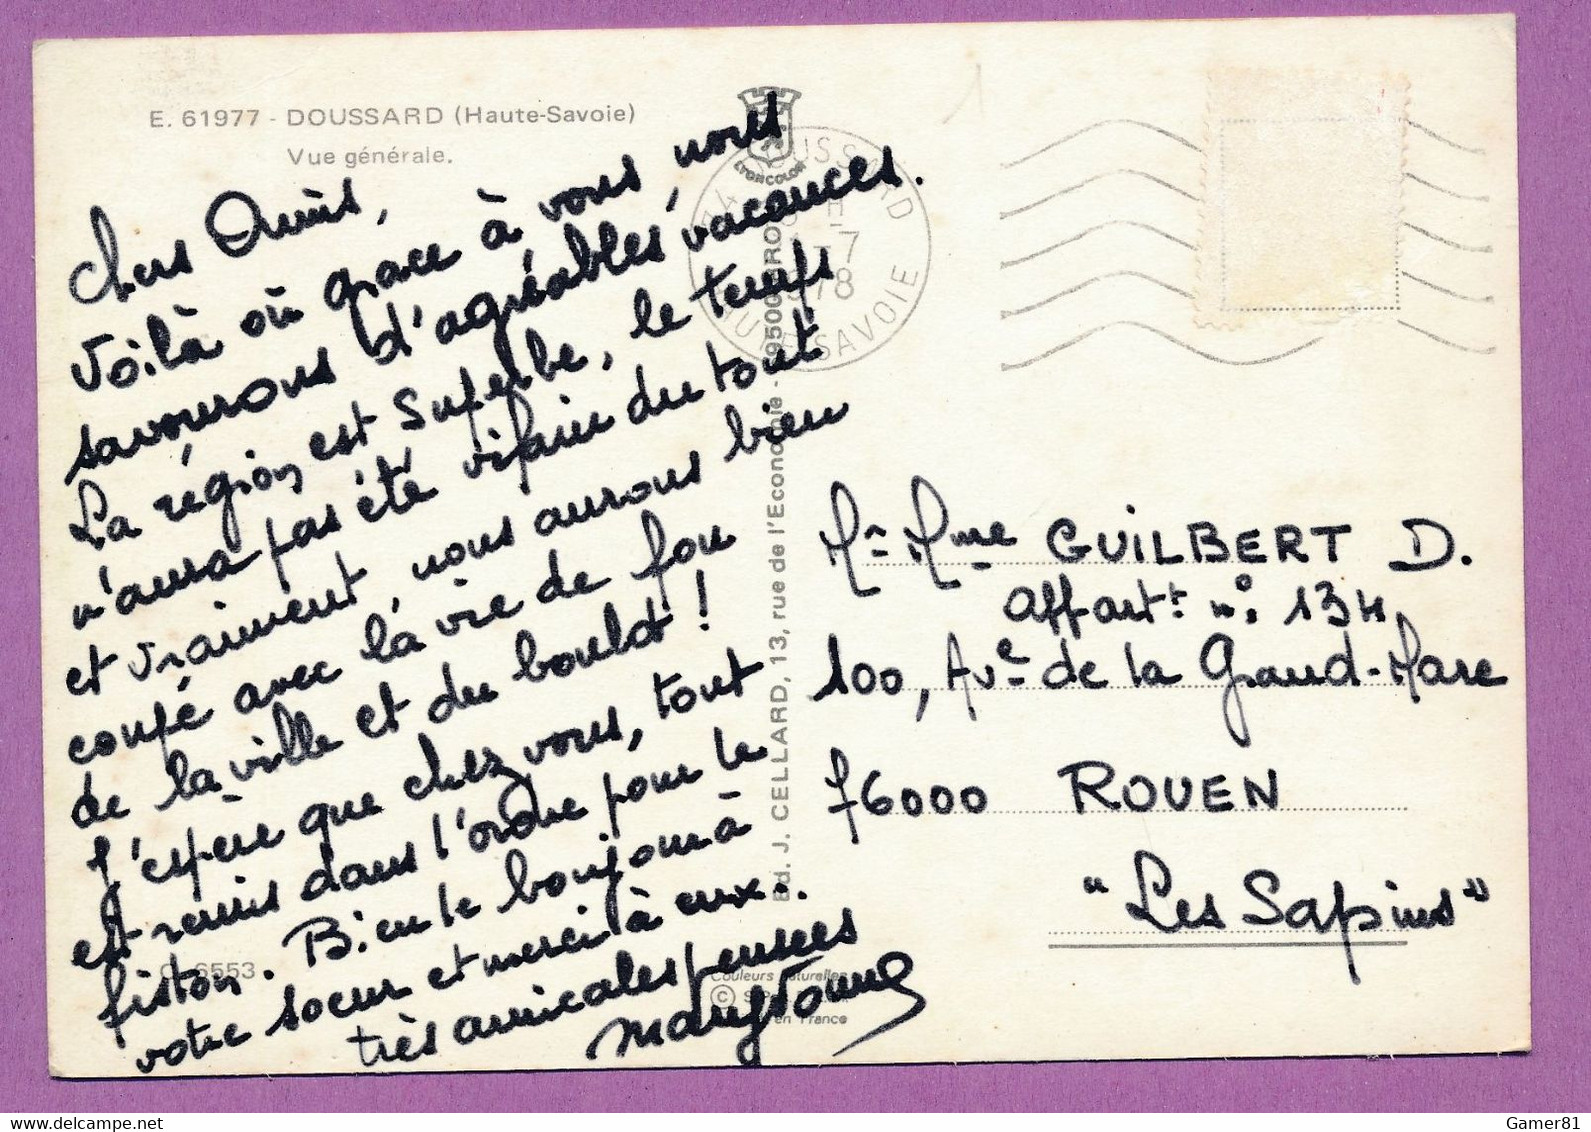 E. 61977 - DOUSSARD (Haute-Savoie)
Vue générale.
Chers Amis,
Voilà où grace à vous, nous
savourons d'agréables vacances.
La région est superbe, le temps
n'aura pas été vilain du tout
et vraiment, nous aurons bien
coupé avec la vie de fou
de la ville et du boulot !
J'espère que chez vous, tout
est remis dans l'ordre pour le
fiston. Bien le bonjour à
votre soeur et merci à eux..
très amicales pensées
LYONCOLOR
74 DOUSSARD
-7
1978
HAUTE-SAVOIE
Ed. J. CELLARD, 13, rue de l'Economie - 69500 BRON
Mr Mme GUILBERT D.
appartt n° 134
100, Ave de la Grand-Mare
76000 ROUEN
"Les Sapins"
6553
Couleurs naturelles
©
en France
Gamer81